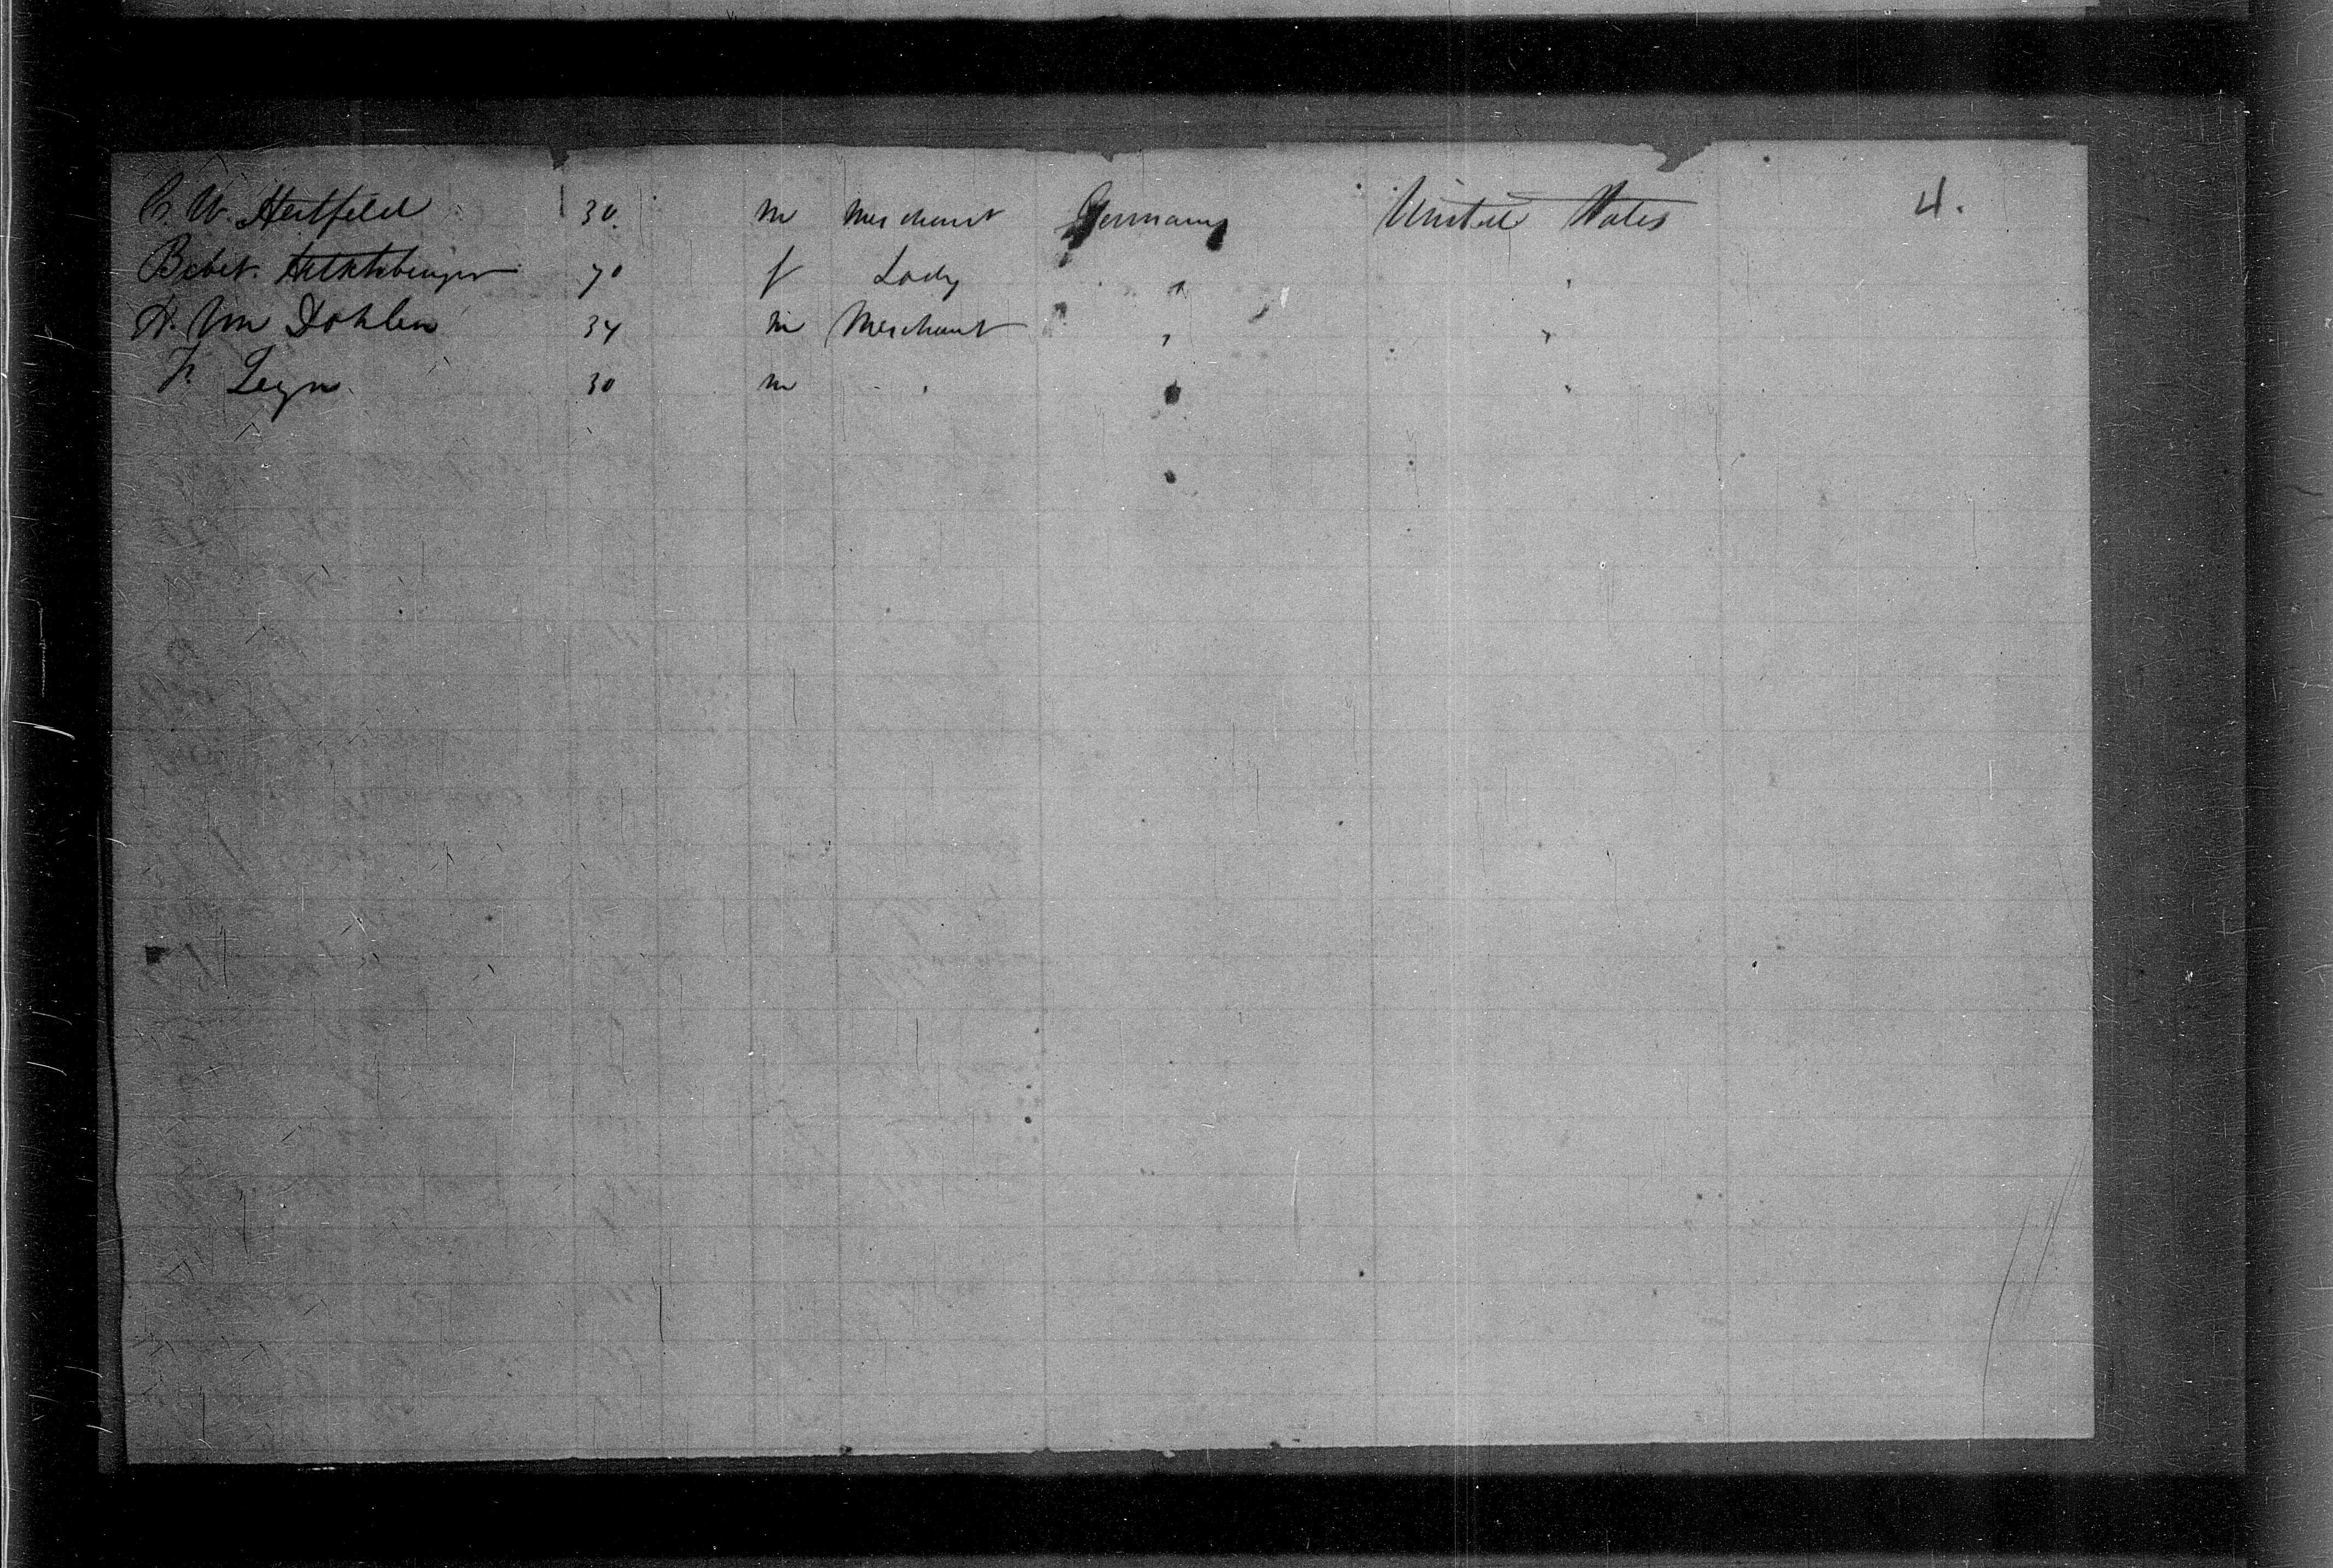 C. W. Heitfeld 30. m Merchant Germany United States 4.
Bebet. 70 f Lady " "
H. Von Dohlen 34 m Merchant " "
Fr 30 m " " "